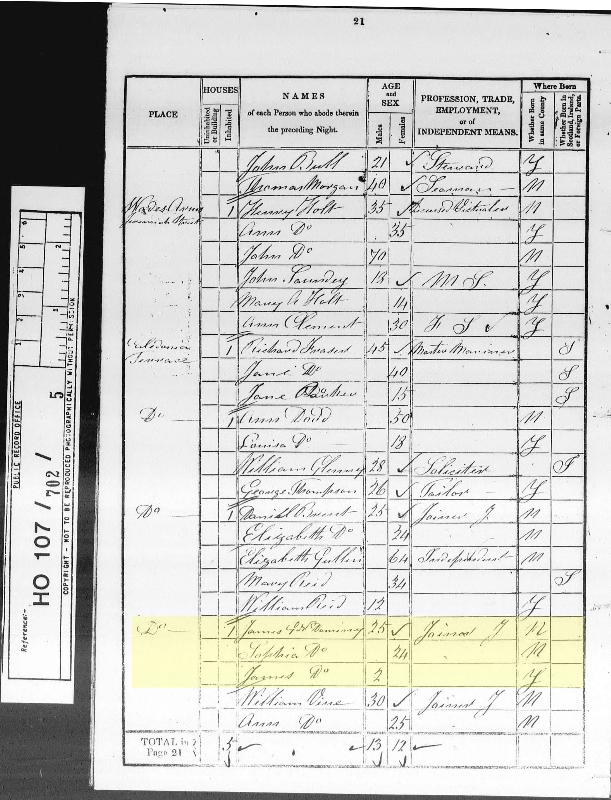 21
PLACE HOUSES NAMES of each Person who abode therein the preceding Night. AGE and SEX PROFESSION, TRADE, EMPLOYMENT, or of INDEPENDENT MEANS. Where Born
Uninhabited or Building Inhabited Males Females Whether Born in same County Whether Born in Scotland, Ireland, or Foreign Parts.
John Butt 21 Steward Y
Thomas Morgan 40 Seaman N
1 Henry Holt 35 Licensed Victualer N
Ann Do 35 Y
John Do 70 N
John 18 M S. Y
Mary A Holt 14 Y
Ann Clement 30 F S Y
Caledonian Terrace 1 Richard Fraser 45 Master Mariner S
Jane Do 40 S
Jane 15 S
Do 1 Ann Dodd 50 N
Louisa Do 18 Y
William 28 Solicitor
George Thompson 26 Tailor Y
Do 1 Daniel 25 Joiner J N
Elizabeth Do 34 N
Elizabeth 64 Independent N
Mary Reid 34 S
William Reid 12 Y
Do 1 James 25 Joiner J N
Sophia Do 24 N
James Do 2 Y
William Vine 30 Joiner J N
Ann Do 25 N
TOTAL in Page 21 5 13 12
PUBLIC RECORD OFFICE
Reference:-
HO 107 / 702 / 5
COPYRIGHT - NOT TO BE REPRODUCED PHOTOGRAPHICALLY WITHOUT PERMISSION
1 2 3 4 5 6
1 2